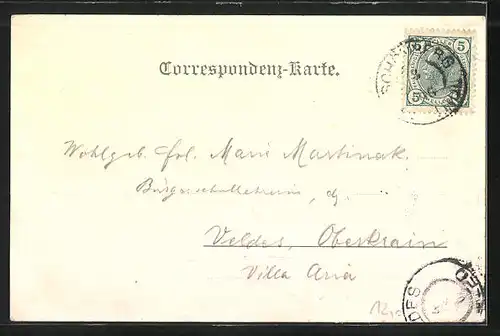 Correspondenz-Karte.
5 5
SCHAFBERG
Wohlgeb. frl. Marie Martinak.
Bürgerschullehrerin, dz.
Veldes, Oberkrain
Villa Aria
DES VELD